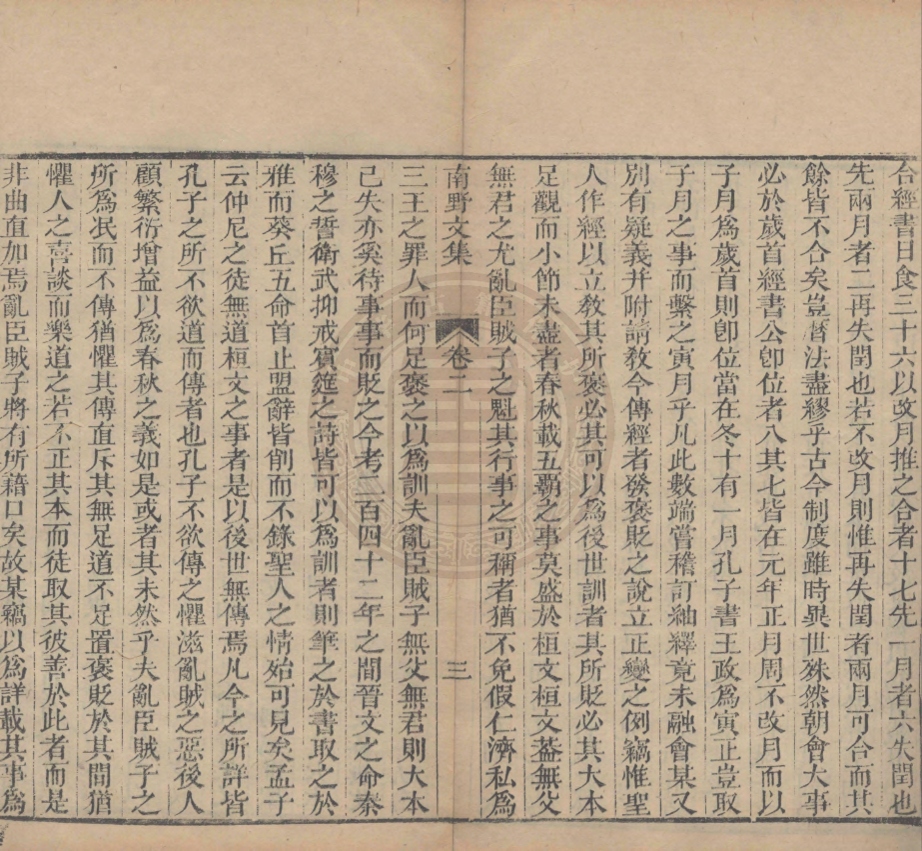 合經書日食三十六以改月推之合者十七先一月者六失閏也
先兩月者二再失閏也若不改月則惟再失閏者兩月可合而其
餘皆不合矣豈曆法盡繆乎古今制度雖時異世殊然朝會大事
必於歲首經書公卽位者八其七皆在元年正月周不改月而以
子月爲歲首則卽位當在冬十有一月孔子書王政爲寅正豈取
子月之事而繫之寅月乎凡此數端嘗稽訂紬繹竟未融會某又
別有疑義并附請敎今傳經者發褒貶之說立正變之例竊惟聖
人作經以立敎其所褒必其可以爲後世訓者其所貶必其大本
足觀而小節未盡者春秋載五覇之事莫盛於桓文桓文葢無父
無君之尤亂臣賊子之魁其行事之可稱者猶不免假仁濟私爲
南野文集 卷二 三
三王之罪人而何足褒之以爲訓夫亂臣賊子無父無君則大本
已失亦奚待事事而貶之今考二百四十二年之間晉文之命秦
穆之誓衛武抑戒賓筵之詩皆可以爲訓者則筆之於書取之於
雅而葵丘五命首止盟辭皆削而不錄聖人之情始可見矣孟子
云仲尼之徒無道桓文之事者是以後世無傳焉凡今之所詳皆
孔子之所不欲道而傳者也孔子不欲傳之懼滋亂賊之惡後人
顧繁衍增益以爲春秋之義如是或者其未然乎夫亂臣賊子之
所爲泯而不傳猶懼其傳直斥其無足道不足置褒貶於其間猶
懼人之喜談而樂道之若不正其本而徒取其彼善於此者而是
非曲直加焉亂臣賊子將有所藉口矣故某竊以爲詳載其事爲